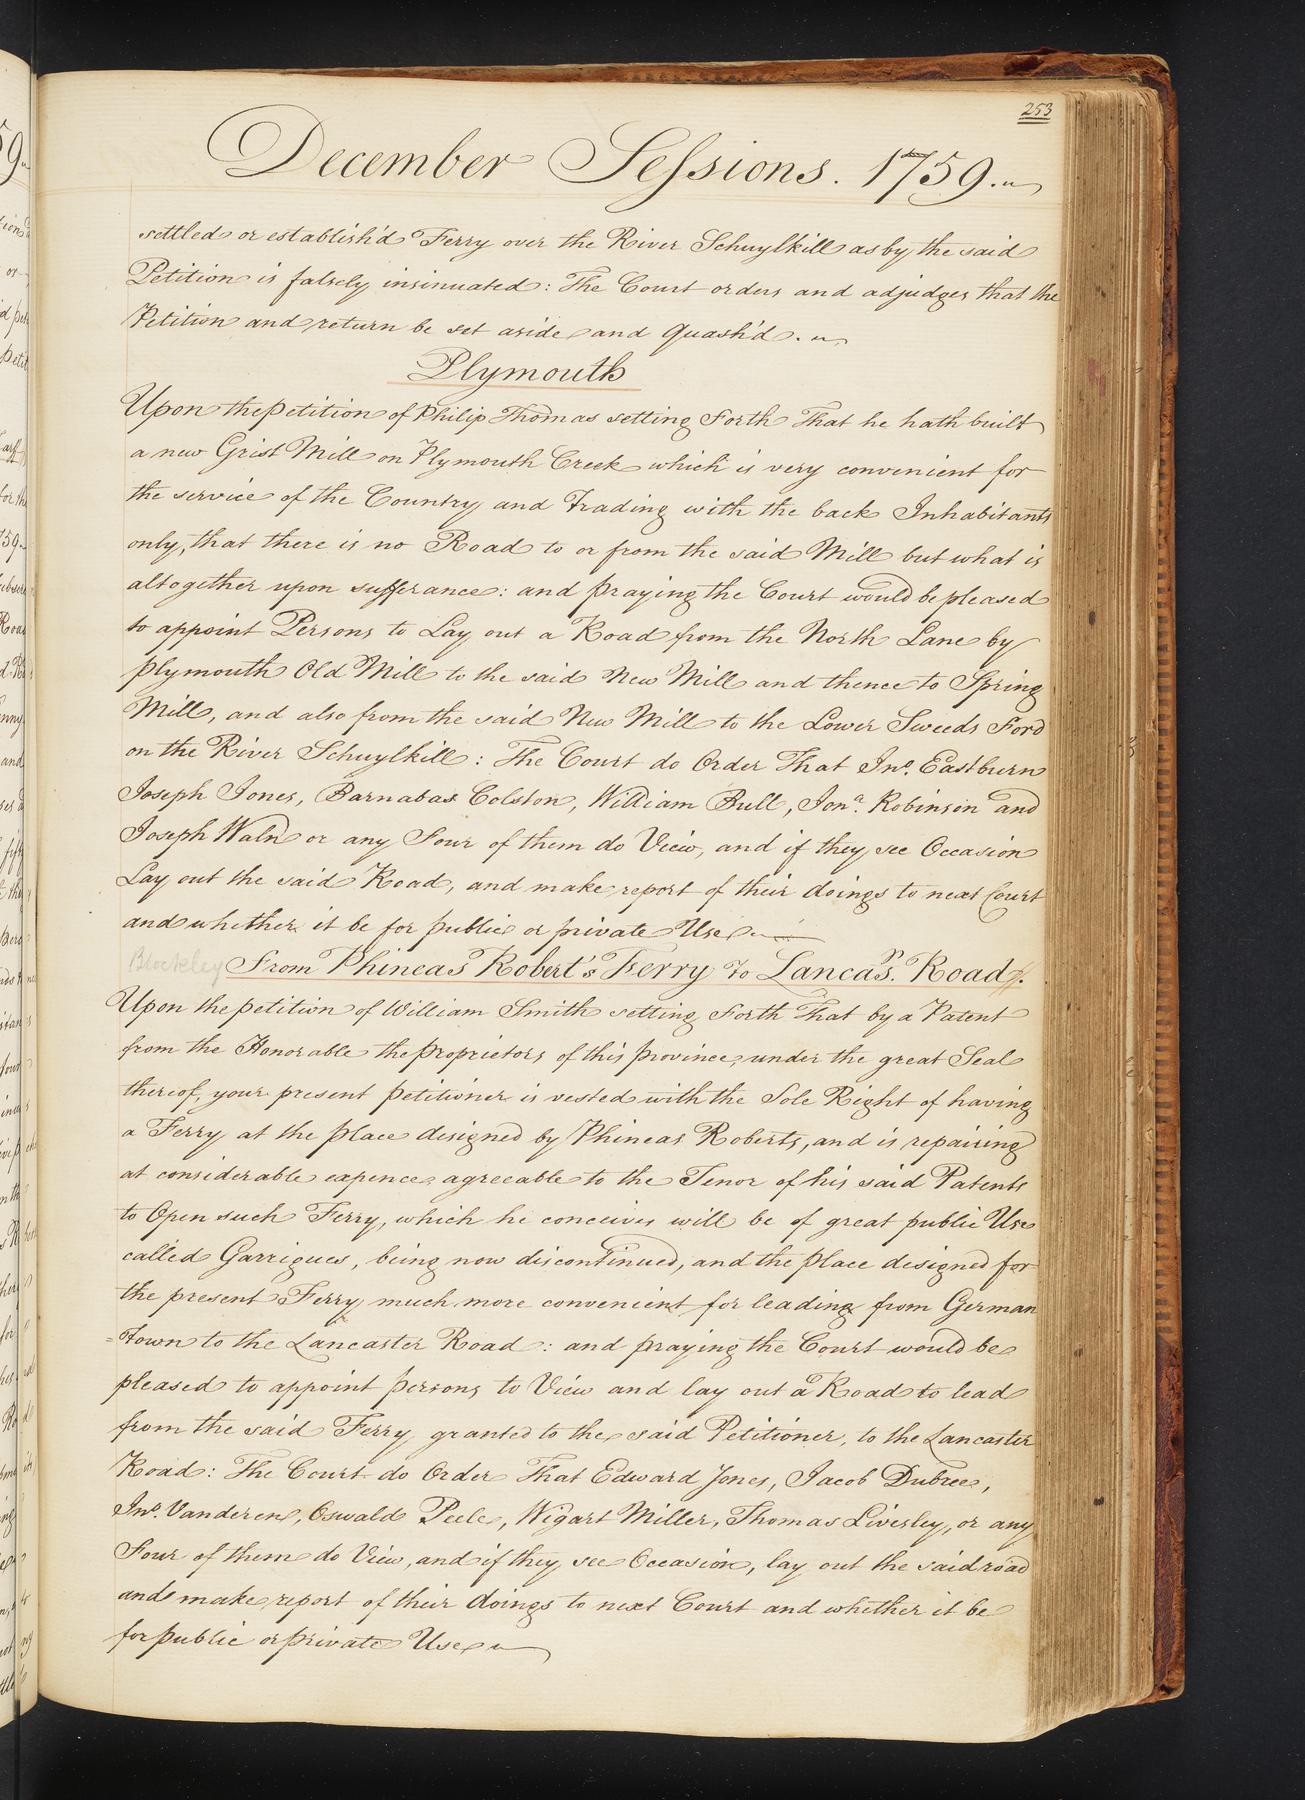 253
December Sessions. 1759.
settled or establish'd Ferry over the River Schuylkill as by the said
Petition is falsely insinuated: The Court orders and adjudges that the
Petition and return be set aside and Quash'd.
Plymouth
Upon the petition of Philip Thomas setting Forth That he hath built
a new Grist Mill on Plymouth Creek which is very convenient for
the service of the Country and Trading with the back Inhabitants
only, that there is no Road to or from the said Mill but what is
altogether upon sufferance: and praying the Court would be pleased
to appoint Persons to Lay out a Road from the North Lane by
plymouth Old Mill to the said New Mill and thence to Spring
Mill, and also from the said New Mill to the Lower Sweeds Ford
on the River Schuylkill: The Court do Order That Jno. Eastburn
Joseph Jones, Barnabas Colston, William Bull, Jona. Robinson and
Joseph Waln or any Four of them do View, and if they see Occasion
Lay out the said Road, and make report of their doings to next Court
and whether it be for public or private Use
Blockley From Phineas Robert's Ferry to Lancas.r Road.
Upon the petition of William Smith setting Forth That by a Patent
from the Honorable the proprietors of this province, under the great Seal
thereof, your present petitioner is vested with the Sole Right of having
a Ferry at the place designed by Phineas Roberts, and is repairing
at considerable expence agreeable to the Tenor of his said Patents
to Open such Ferry, which he conceives will be of great public Use
called Garrigues, being now discontinued, and the place designed for
the present Ferry much more convenient for leading from German
=town to the Lancaster Road: and praying the Court would be
pleased to appoint persons to View and lay out a Road to lead
from the said Ferry granted to the said Petitioner, to the Lancaster
Road: The Court do Order That Edward Jones, Jacob Dubree,
Jno. Vanderen, Oswald Peele, Wigart Miller, Thomas Liversley, or any
Four of them do View, and if they see Occasion, lay out the said road
and make report of their doings to next Court and whether it be
for public or private Use